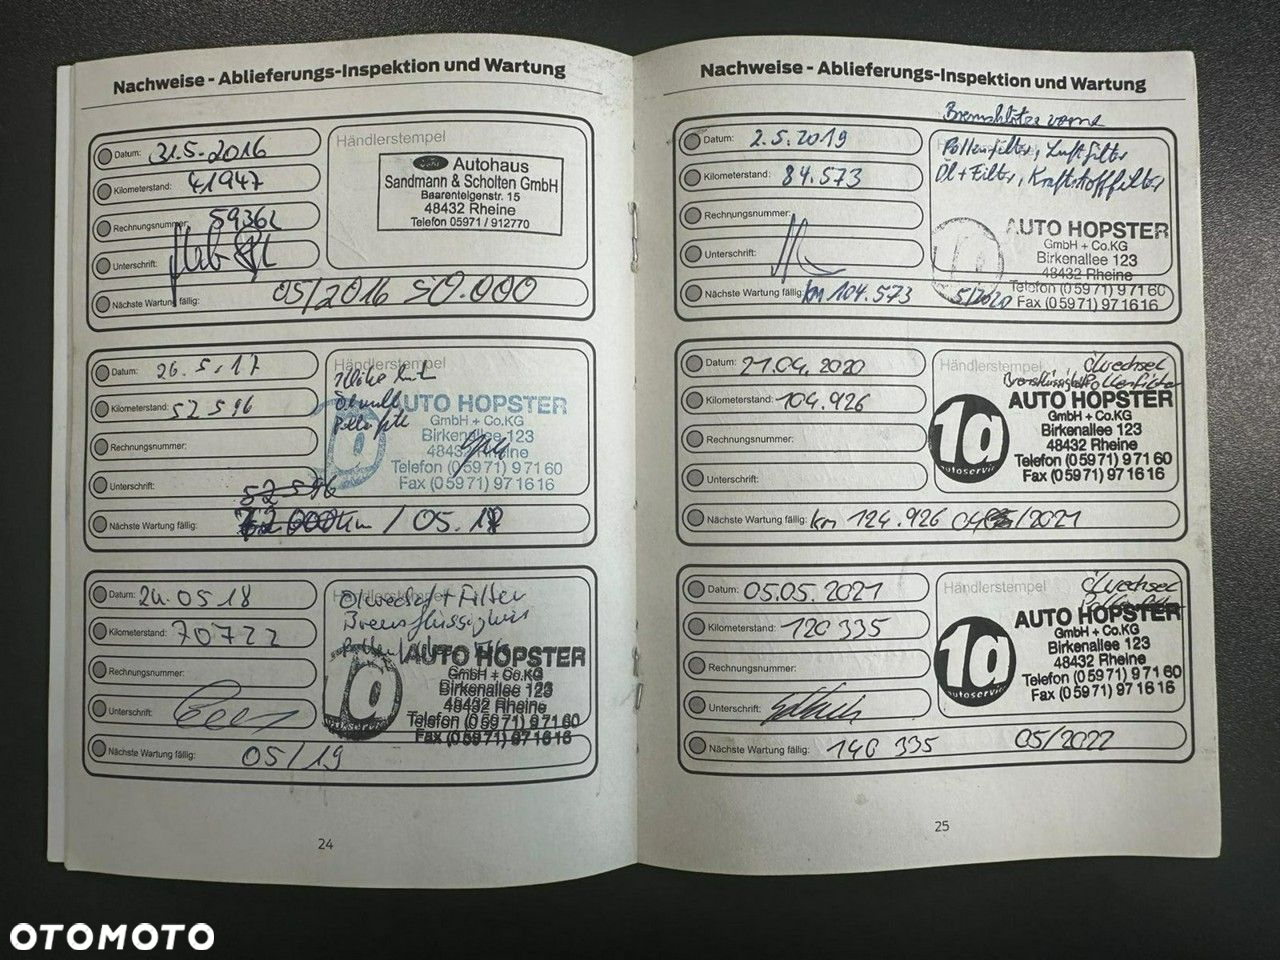 Nachweise - Ablieferungs-Inspektion und Wartung
Datum: 31.5.2016
Kilometerstand: 41947
Rechnungsnummer: 59362
Unterschrift:
Nächste Wartung fällig: 05/2016 50.000
Händlerstempel
Ford
Autohaus
Sandmann & Scholten GmbH
Baarentelgenstr. 15
48432 Rheine
Telefon 05971 / 912770
Datum: 26.5.17
Kilometerstand: 52596
Rechnungsnummer:
Unterschrift:
52596
Nächste Wartung fällig: 72000km / 05.18
Händlerstempel
AUTO HOPSTER
GmbH + Co.KG
Birkenallee 123
48432 Rheine
Telefon (05971) 97160
Fax (05971) 971616
Datum: 24.05 18
Kilometerstand: 70722
Rechnungsnummer:
Unterschrift:
Nächste Wartung fällig: 05/19
Händlerstempel
Ölwechsel + Filter
Bremsflüssigkeit
1a AUTO HOPSTER
GmbH + Co.KG
Birkenallee 123
48432 Rheine
Telefon (05971) 97160
Fax (05971) 971616
24
Nachweise - Ablieferungs-Inspektion und Wartung
Bremsklötze vorne
Datum: 2.5.2019
Kilometerstand: 84.573
Rechnungsnummer:
Unterschrift:
Nächste Wartung fällig: km 104.573 5/2020
Pollenfilter, Luftfilter
Öl + Filter, Kraftstofffilter
AUTO HOPSTER
GmbH + Co.KG
Birkenallee 123
48432 Rheine
Telefon (05971) 97160
Fax (05971) 971616
Datum: 21.04.2020
Kilometerstand: 104.926
Rechnungsnummer:
Unterschrift:
Nächste Wartung fällig: km 124.926 04/2021
Händlerstempel
Ölwechsel
Bremsflüssigkeit Pollenfilter
1a autoservice
AUTO HOPSTER
GmbH + Co.KG
Birkenallee 123
48432 Rheine
Telefon (05971) 97160
Fax (05971) 971616
Datum: 05.05.2021
Kilometerstand: 120335
Rechnungsnummer:
Unterschrift:
Nächste Wartung fällig: 140 335 05/2022
Händlerstempel
Ölwechsel
1a autoservice
AUTO HOPSTER
GmbH + Co.KG
Birkenallee 123
48432 Rheine
Telefon (05971) 97160
Fax (05971) 971616
25
OTOMOTO